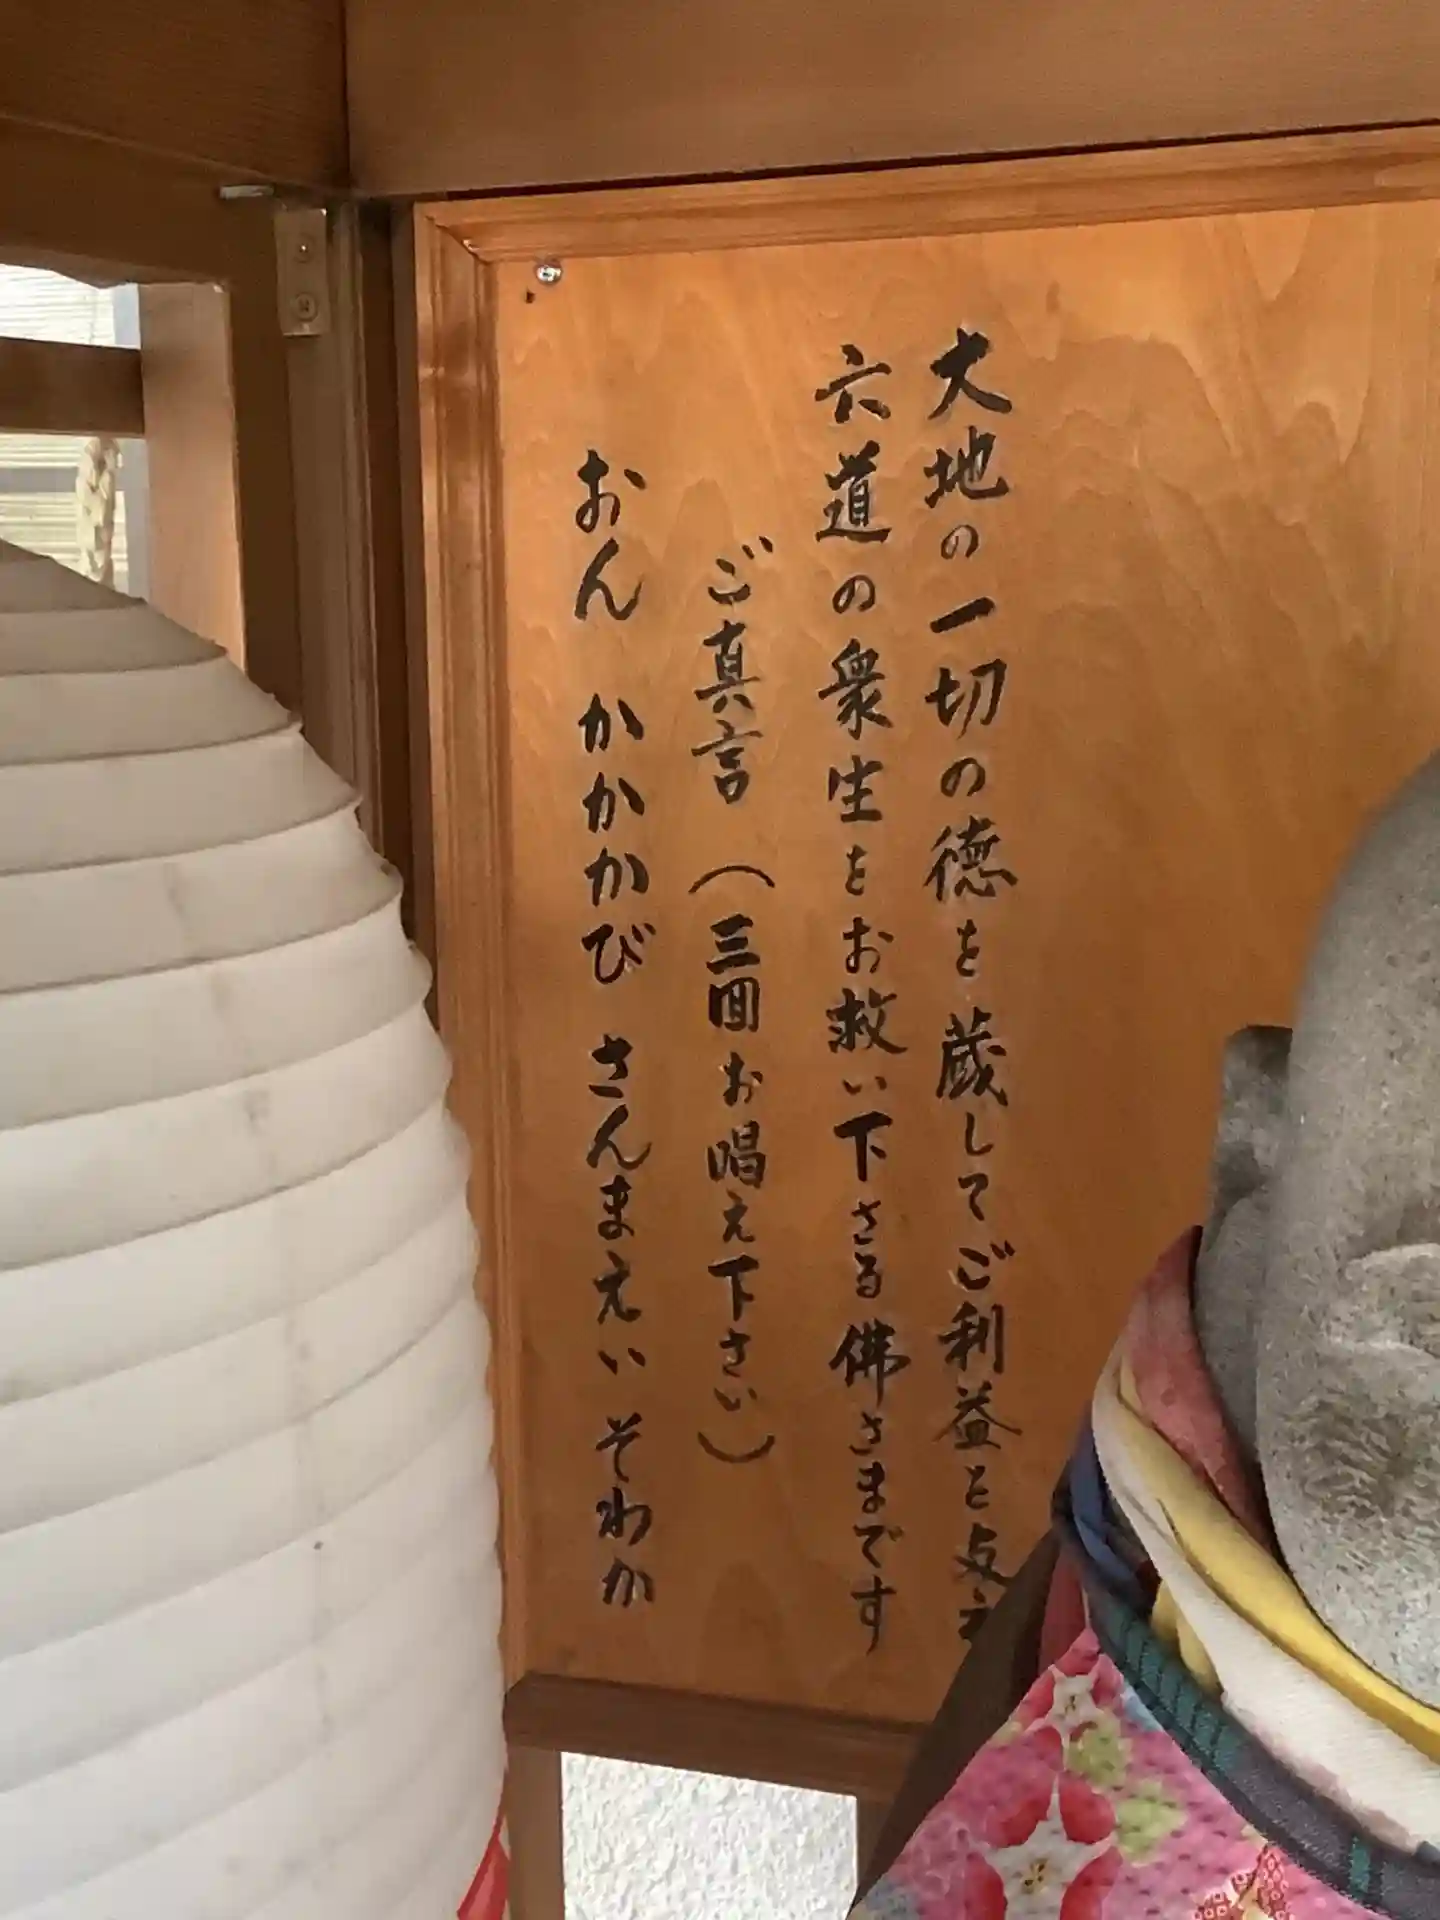 大地の一切の徳を蔵してご利益と与え
六道の衆生をお救い下さる佛さまです
ご真言（三回お唱え下さい）
おん かかかび さんまえい そわか